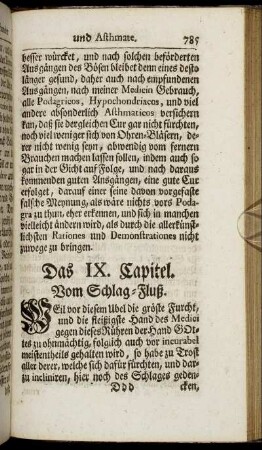 und Asthmate. 785
besser würcket, und nach solchen beförderten
Ausgängen des Bösen bleibet denn eines desto
länger gesund, daher auch nach empfundenen
Ausgängen, nach meiner Medicin Gebrauch,
alle Podagricos, Hypochondriacos, und viel
andere absonderlich Asthmaticos versichern
kan, daß sie dergleichen Cur gar nicht fürchten,
noch viel weniger sich von Ohren-Bläsern, de-
rer nicht wenig seyn, abwendig vom fernern
Brauchen machen lassen sollen, indem auch so-
gar in der Gicht auf Folge, und nach daraus
kommenden guten Ausgängen, eine gute Cur
erfolget, darauf einer seine davon vorgefaste
falsche Meynung, als wäre nichts vors Poda-
gra zu thun, eher erkennen, und sich in manchen
vielleicht ändern wird, als durch die allerkünst-
lichsten Rationes und Demonstrationes nicht
zuwege zu bringen.
Das IX. Capitel.
Vom Schlag-Fluß.
WEil vor diesem Ubel die gröste Furcht,
und die fleißigste Hand des Medici
gegen dieses Rühren der Hand GOt-
tes zu ohnmächtig, folglich auch vor incurabel
meistentheils gehalten wird, so habe zu Trost
aller derer, welche sich dafür fürchten, und dar-
zu incliniren, hier noch des Schlages geden-
Ddd cken,